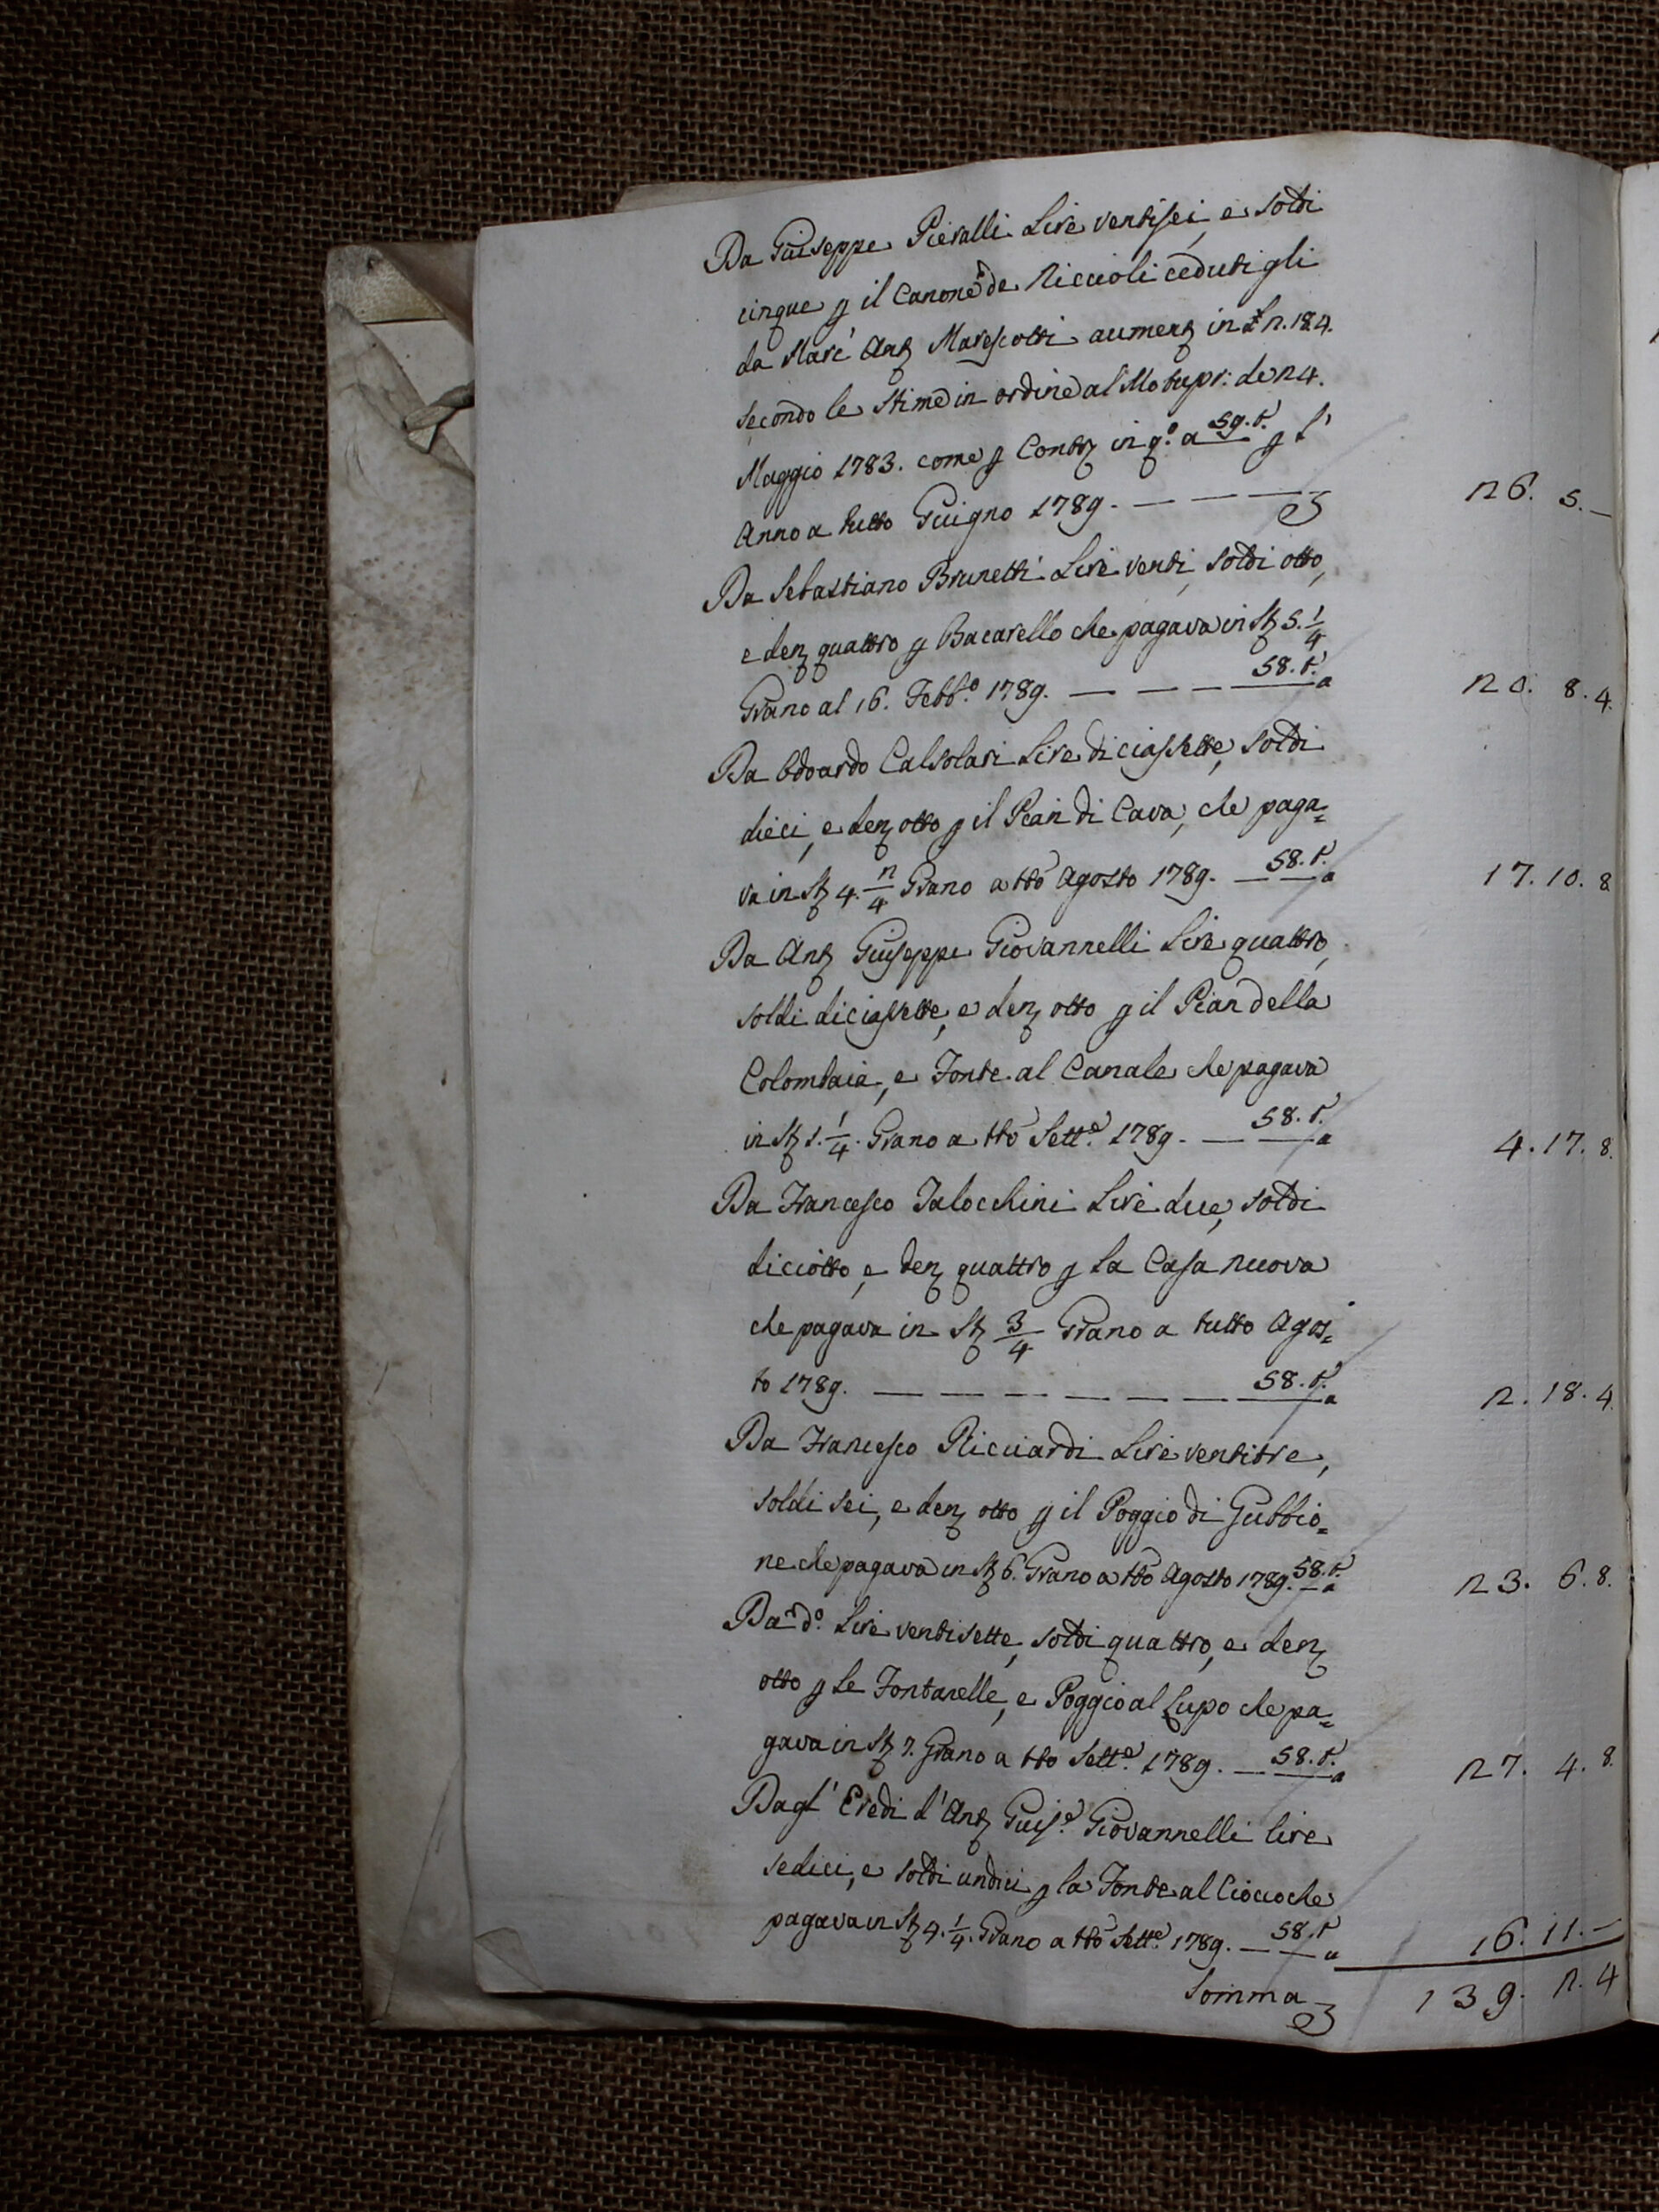 Da Giuseppe Pieralli Lire ventisei, e soldi
cinque p il Canone de Riccioli cedutigli
da Marc' Ant Marescotti aument in £ 2.18.4.
secondo le stime in ordine al Motupr: de 24.
Maggio 1783. come p Contr in q.º a 59.t. p l'
Anno a tutto Giugno 1789. — — — 26. 5. —
Da Sebastiano Brunetti Lire venti, soldi otto,
e den quattro p Bacarello che pagava in St 5. 1/4
Grano al 16. Febb.º 1789. — — — 58.t. a 20. 8. 4.
Da Odoardo Calsolari Lire diciassette, soldi
dieci, e den otto p il Pian di Cava, che paga=
va in St 4. 2/4 Grano a tto Agosto 1789. — 58.t. a 17. 10. 8
Da Ant Giuseppe Giovannelli Lire quattro,
soldi diciassette, e den otto p il Pian della
Colombaia, e Fonte al Canale che pagava
in St 1. 1/4. Grano a tto Sett.e 1789. — 58.t. a 4. 17. 8.
Da Francesco Talocchini Lire due, soldi
diciotto, e den quattro p la Casa nuova
che pagava in St 3/4 Grano a tutto Agos=
to 1789. — — — — — — 58.t. a 2. 18. 4.
Da Francesco Ricciardi Lire ventitre,
soldi sei, e den otto p il Poggio di Gubbio=
ne che pagava in St 6. Grano a tto Agosto 1789. 58.t. a 23. 6. 8.
Da d.º Lire ventisette, soldi quattro, e den
otto p le Fontanelle, e Poggio al Lupo che pa=
gava in St 7. Grano a tto Sett.e 1789. — 58.t. a 27. 4. 8.
Dagl' Eredi d'Ant Guis.e Giovannelli lire
sedici, e soldi undici p la Fonte al Ciocco che
pagava in St 4. 1/4. Grano a tto Sett.e 1789. — 58.t a 16. 11. —
Somma 139. 2. 4